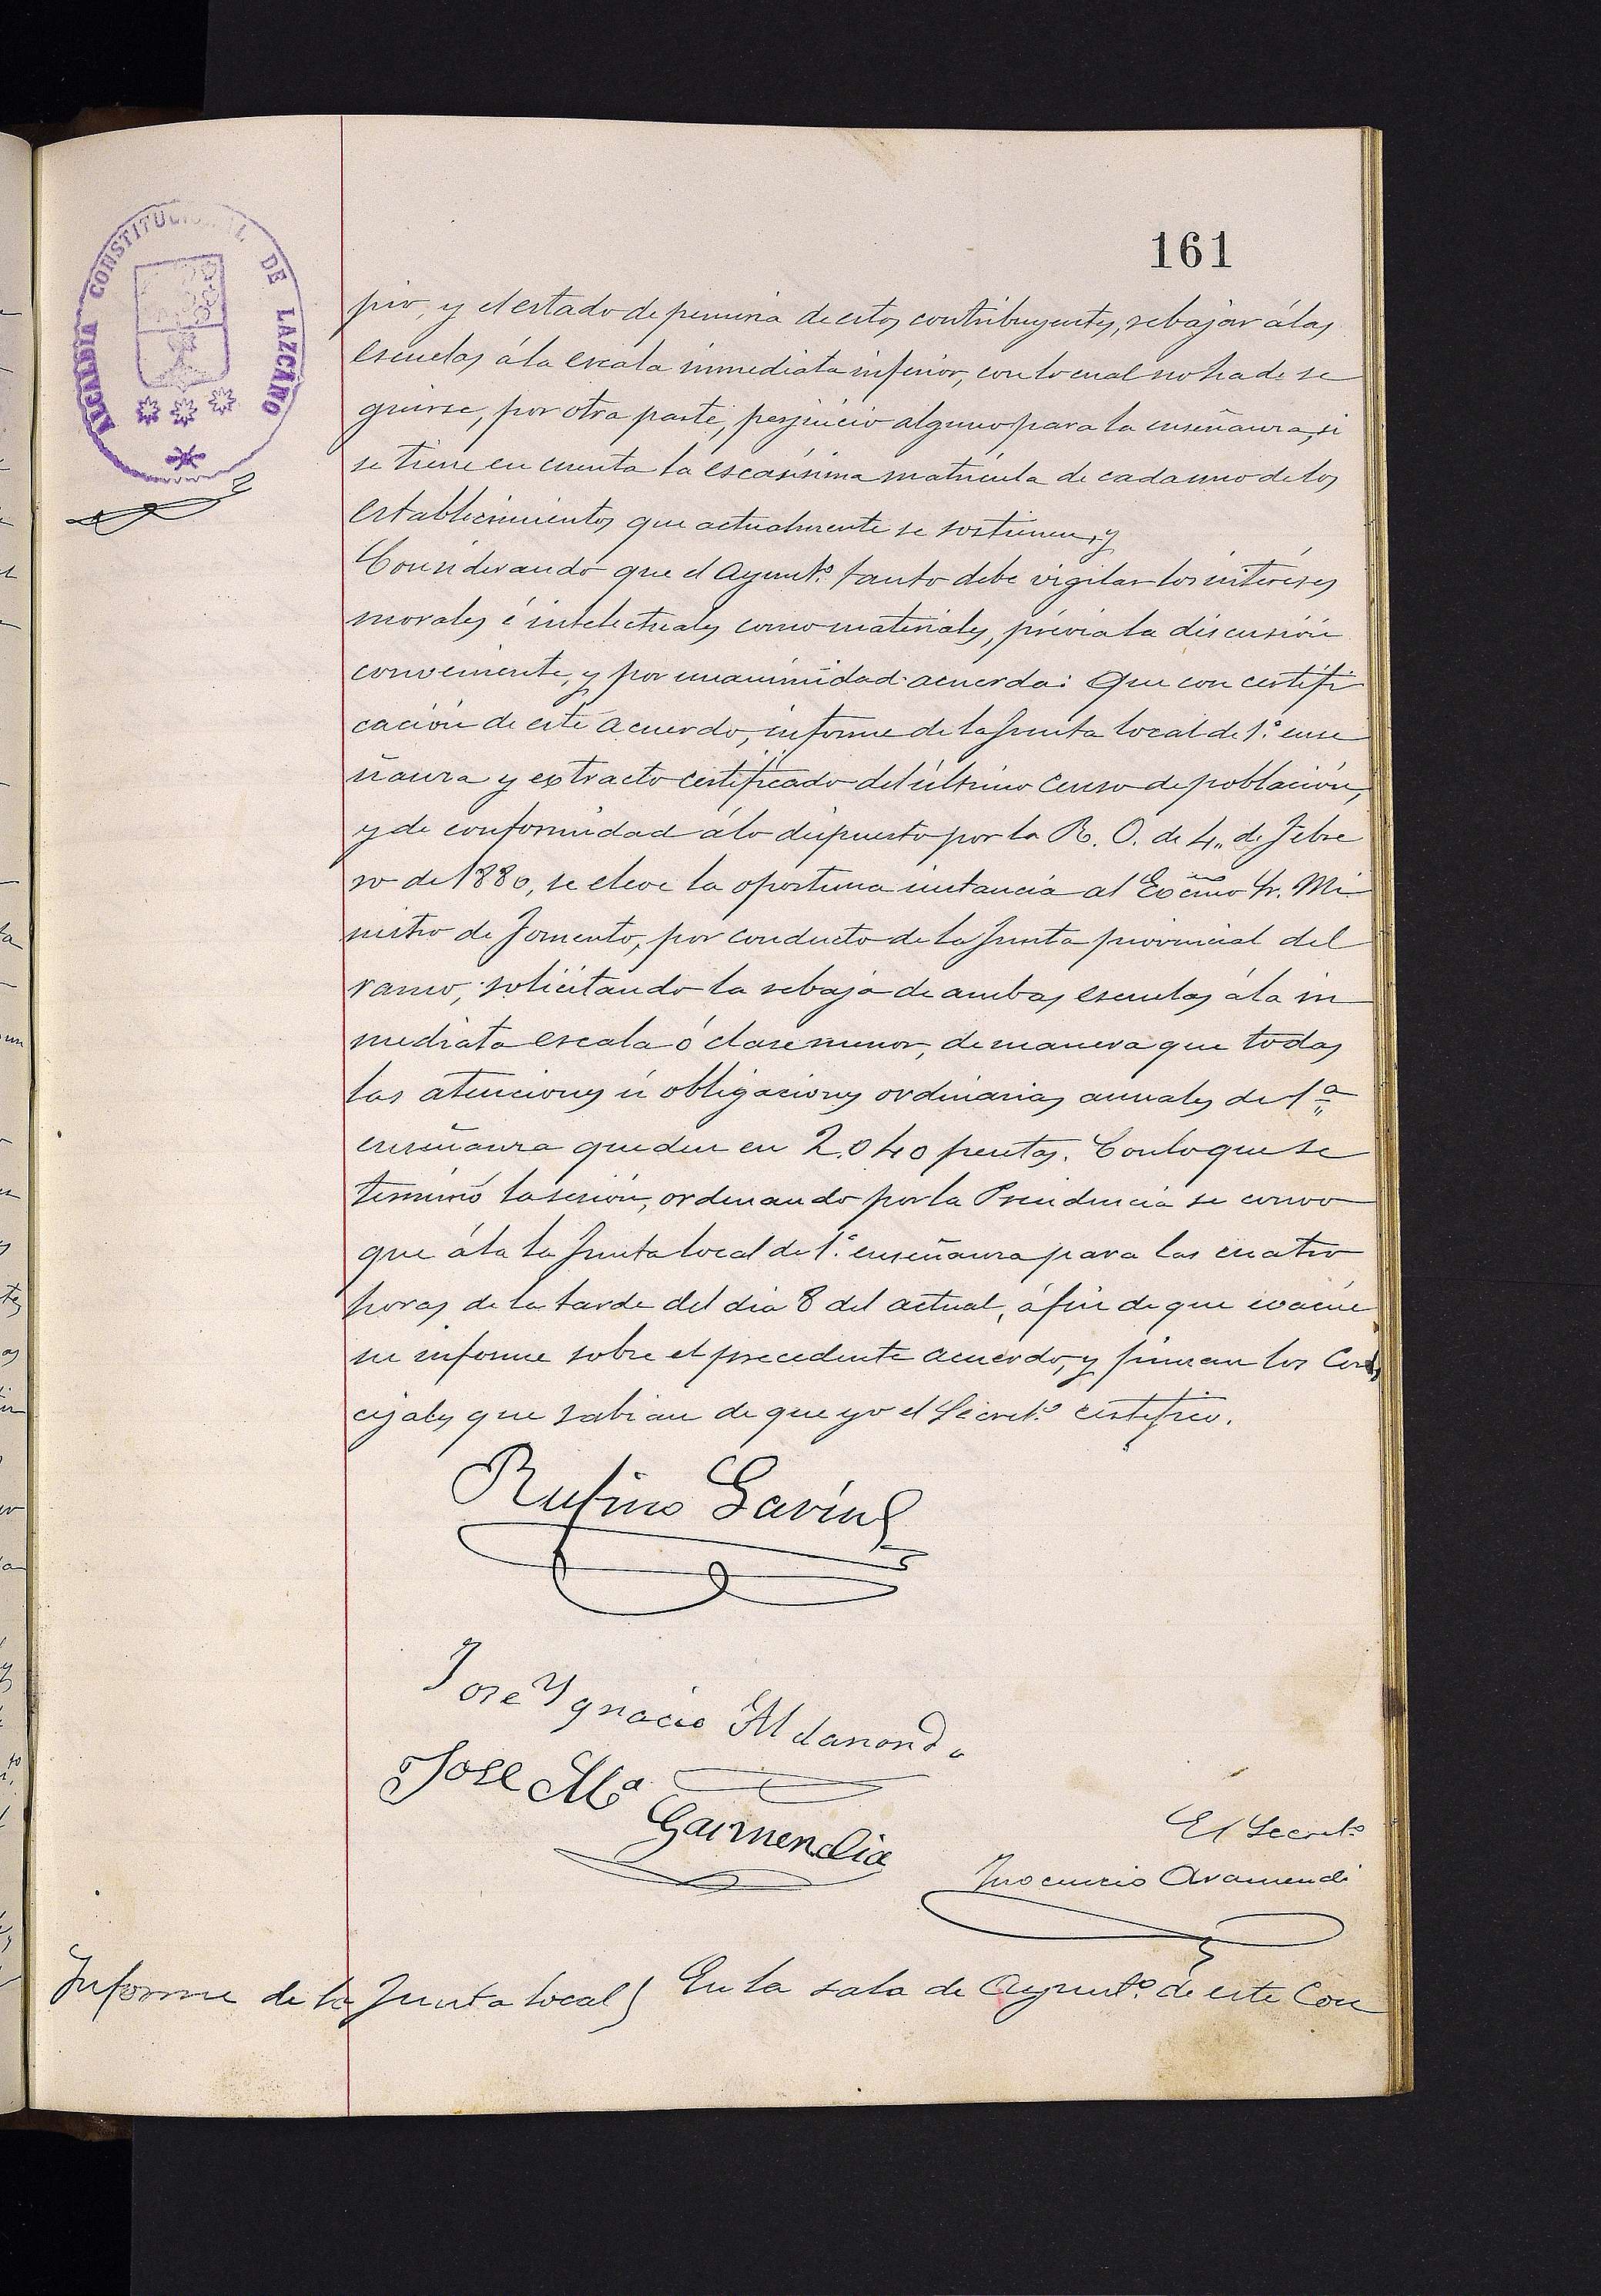 161
ALCALDIA CONSTITUCIONAL DE LAZCANO
pio, y el estado de penuria de estos contribuyentes, rebajar á las
escuelas á la escala inmediata inferior, con lo cual no ha de se
guirse, por otra parte, perjuicio alguno para la enseñanza, si
se tiene en cuenta la escasísima matrícula de cada uno de los
establecimientos que actualmente se sostienen, y
Considerando que el Ayuntº. tanto debe vigilar los intereses
morales é intelectuales como materiales, prévia la discusión
conveniente, y por unanimidad acuerda: Que con certifi
cación de este acuerdo, informe de la Junta local de 1ª. ense
ñanza y extracto certificado del último Censo de población,
y de conformidad á lo dispuesto por la R. O. de 4,, de Febre
ro de 1880, se eleve la oportuna instancia al Excmo Sr. Mi
nistro de Fomento, por conducto de la Junta provincial del
ramo, solicitando la rebaja de ambas escuelas á la in
mediata escala ó clase menor, de manera que todas
las atenciones ú obligaciones ordinarias anuales de 1ª
enseñanza queden en 2.040 pesetas. Con lo que se
terminó la sesión, ordenando por la Presidencia se convo
que á la la Junta local de 1ª. enseñanza para las cuatro
horas de la tarde del dia 8 del actual, á fin de que evacúe
su informe sobre el precedente acuerdo, y firman los Con
cejales que sabian de que yo el Secretº. certifico.
Rufino
José Ygnacio Aldanondo
José Mª
Garmendia
El Secretº
Inocencio Aramendi
Informe de la Junta local) En la sala de Ayuntº. de este Con